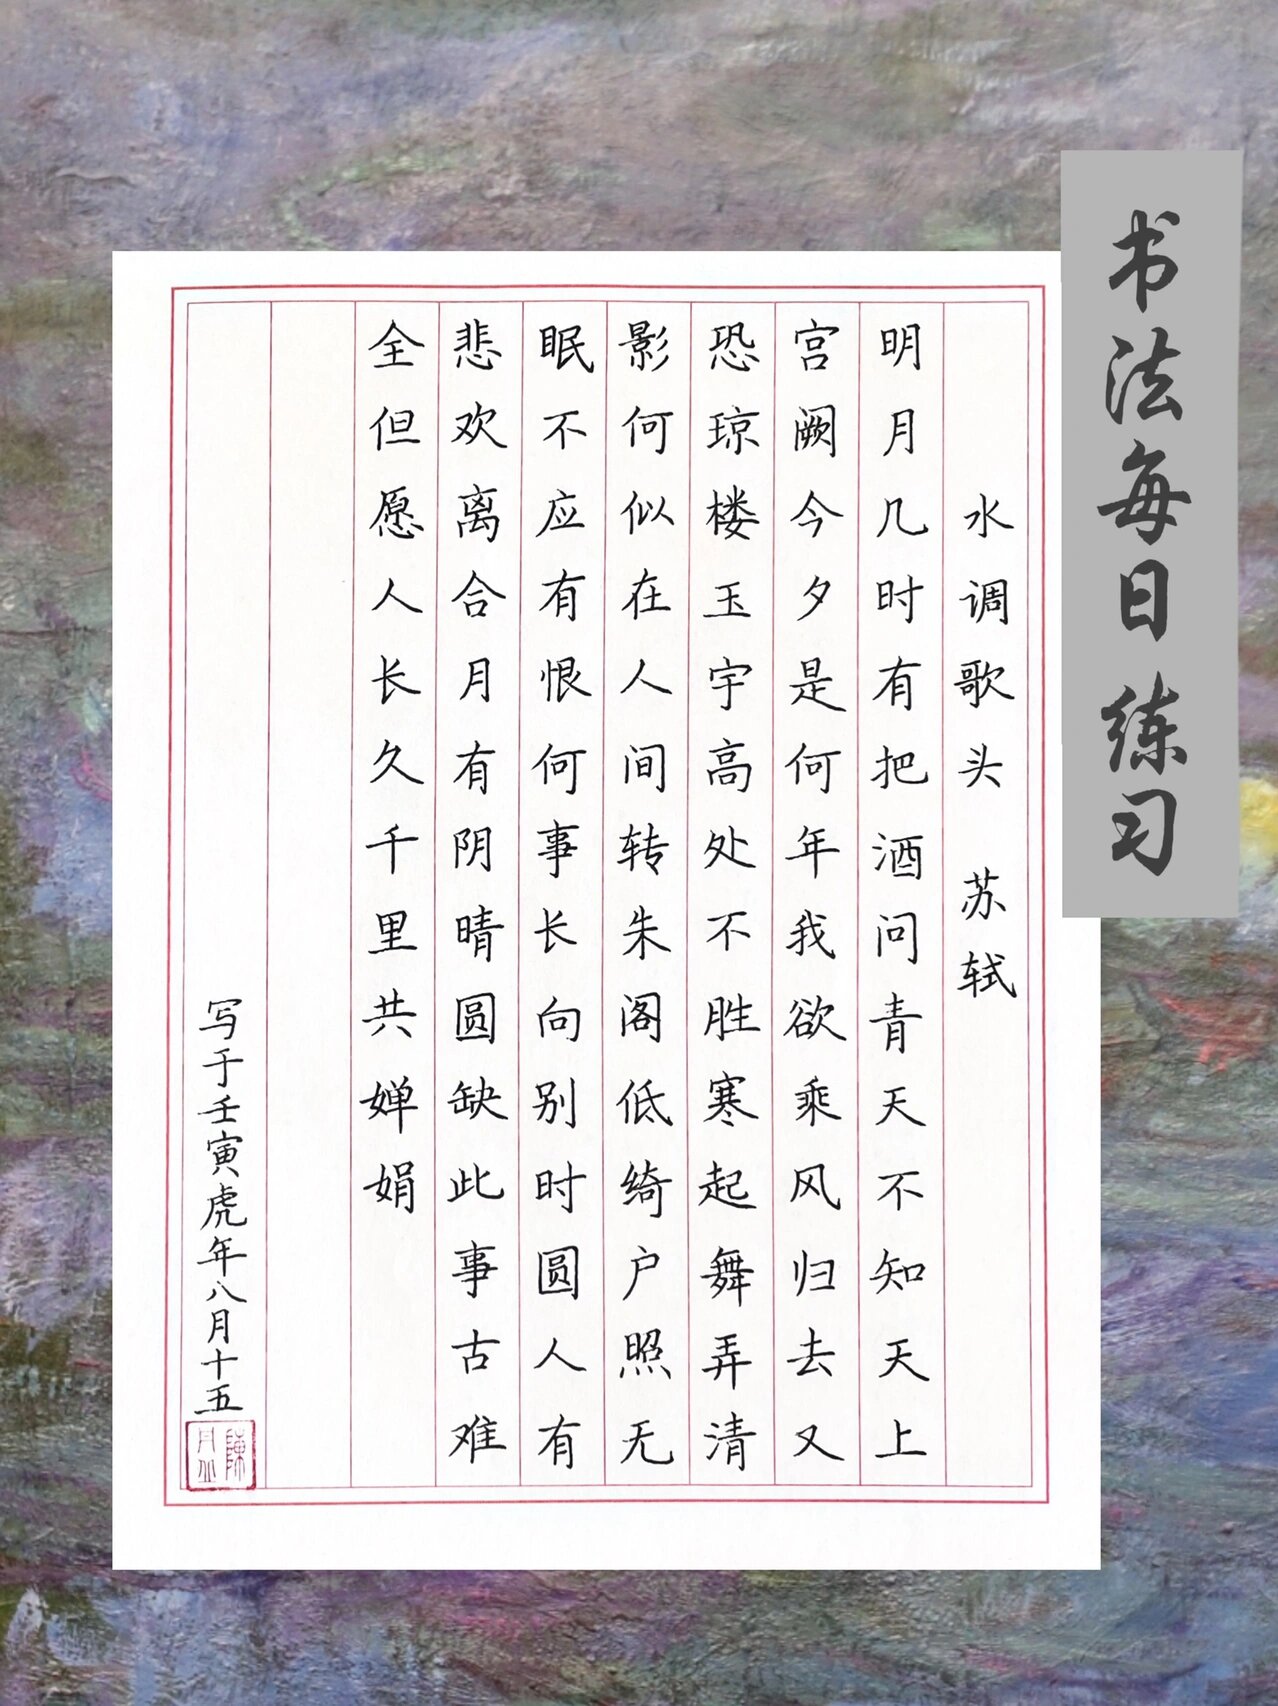 书法每日练习
水调歌头 苏轼
明月几时有把酒问青天不知天上
宫阙今夕是何年我欲乘风归去又
恐琼楼玉宇高处不胜寒起舞弄清
影何似在人间转朱阁低绮户照无
眠不应有恨何事长向别时圆人有
悲欢离合月有阴晴圆缺此事古难
全但愿人长久千里共婵娟
写于壬寅虎年八月十五
陳